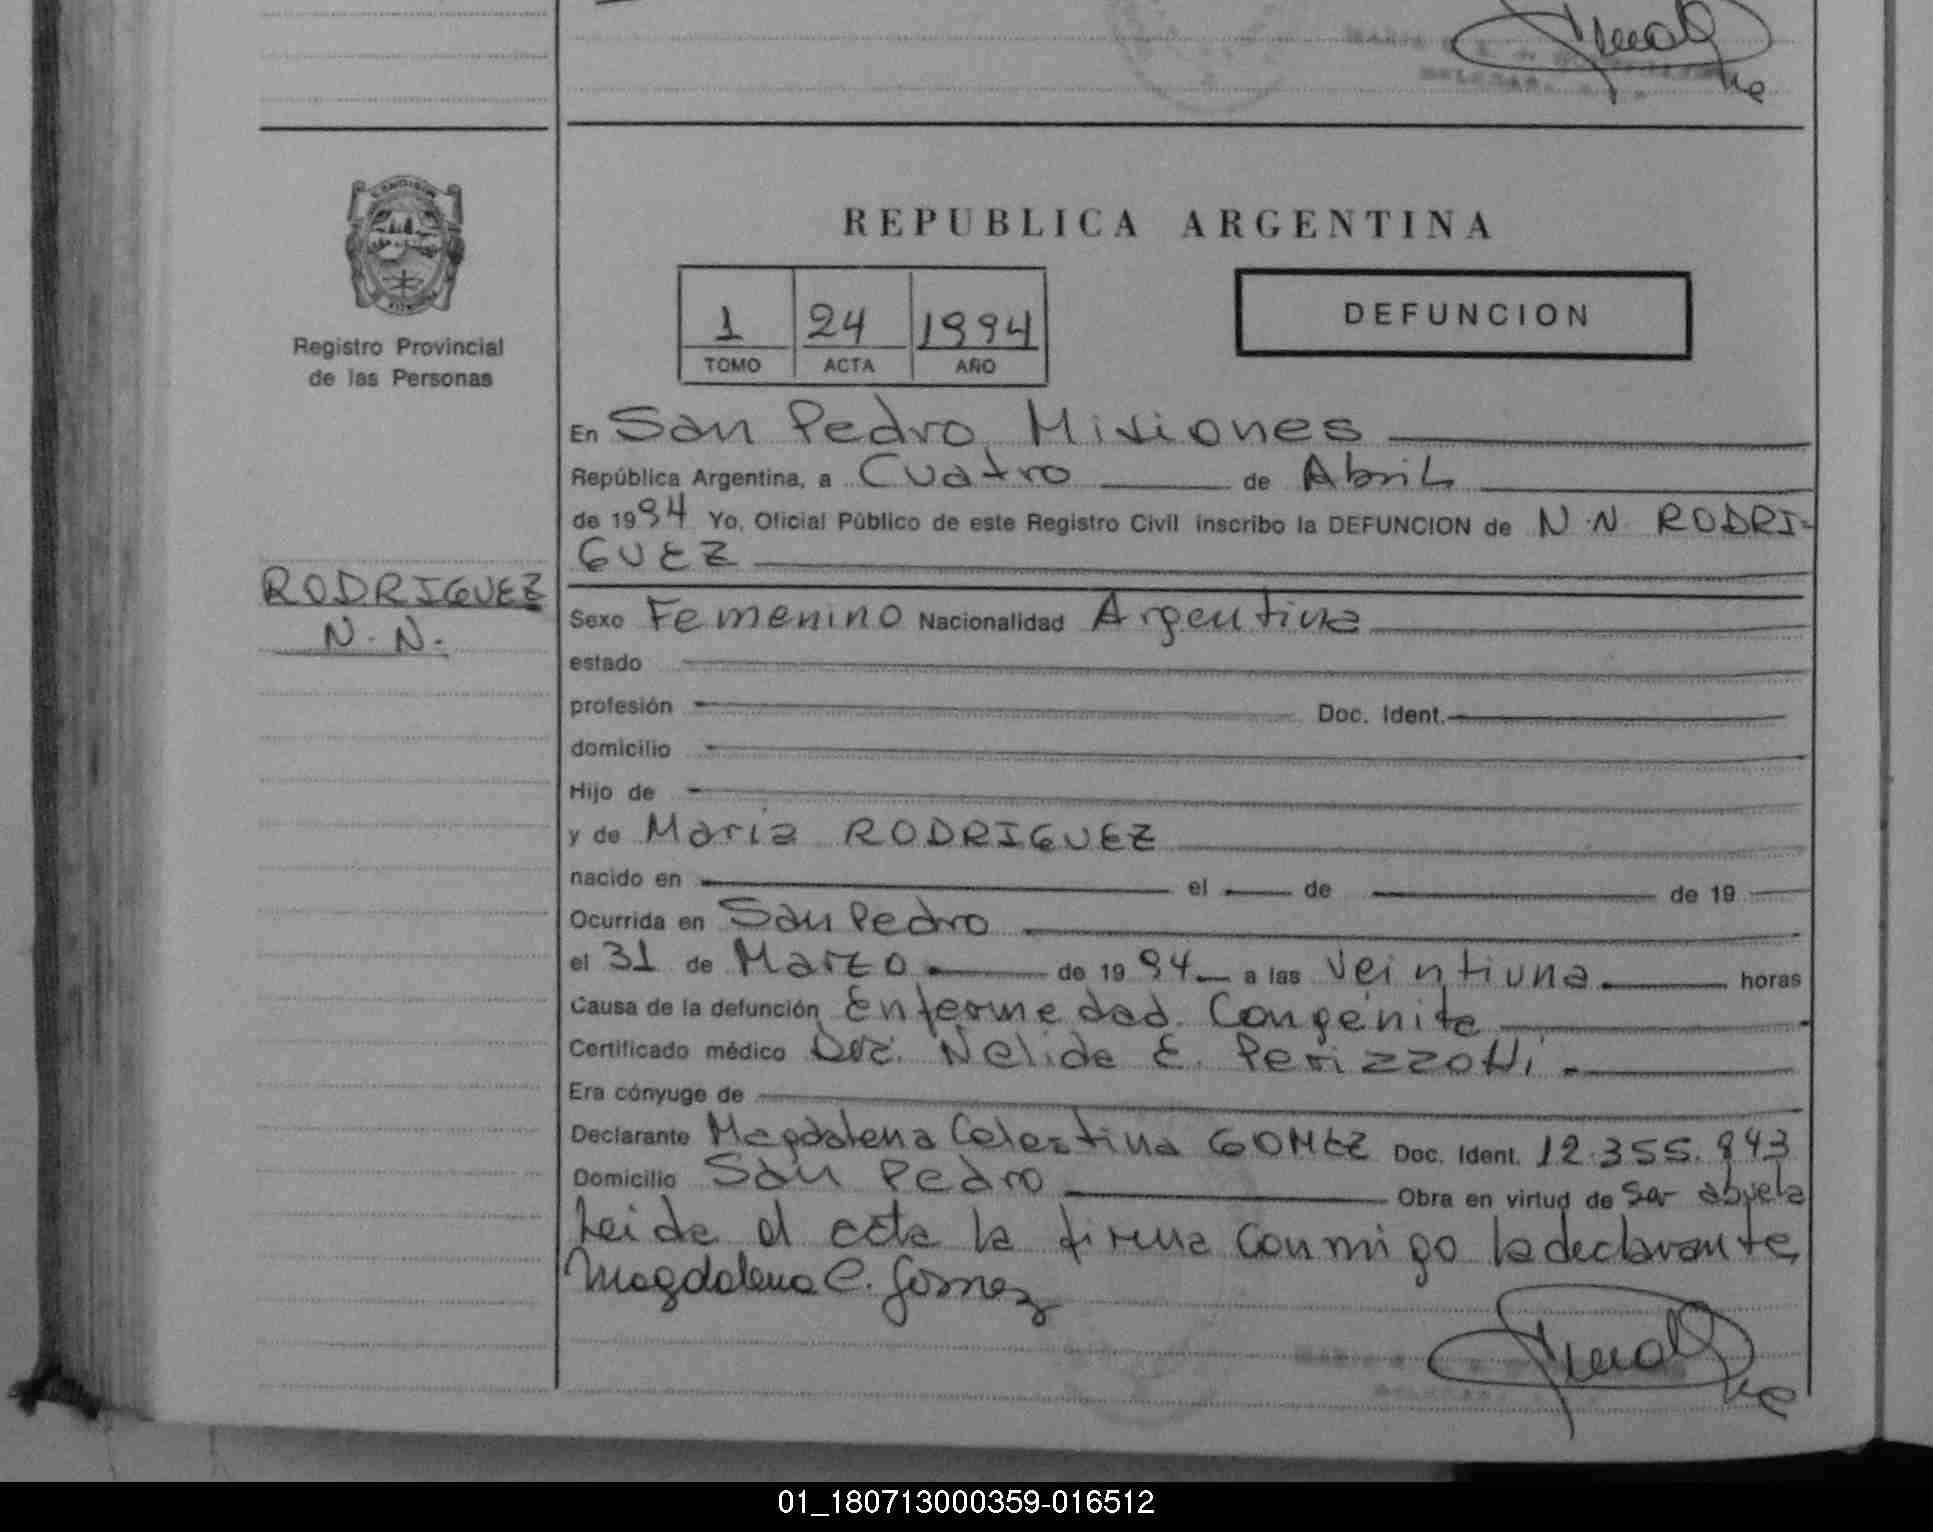 REPUBLICA ARGENTINA
1 24 1994
TOMO ACTA AÑO
DEFUNCION
Registro Provincial
de las Personas
RODRIGUEZ
N. N.
En San Pedro, Misiones
República Argentina, a Cuatro de Abril
de 1994 Yo, Oficial Público de este Registro Civil inscribo la DEFUNCION de N.N. RODRI-
GUEZ
Sexo Femenino Nacionalidad Argentina
estado
profesión Doc. Ident.
domicilio
Hijo de
y de María RODRIGUEZ
nacido en el de de 19
Ocurrida en San Pedro
el 31 de Marzo de 1994 a las Veintiuna horas
Causa de la defunción Enfermedad Congénita
Certificado médico Dra. Nelida E. Perizzotti
Era cónyuge de
Declarante Magdalena Celestina GOMEZ Doc. Ident. 12.355.943
Domicilio San Pedro Obra en virtud de Ser abuela
Leida el acta la firma conmigo la declarante,
Magdalena C. Gomez
01_180713000359-016512